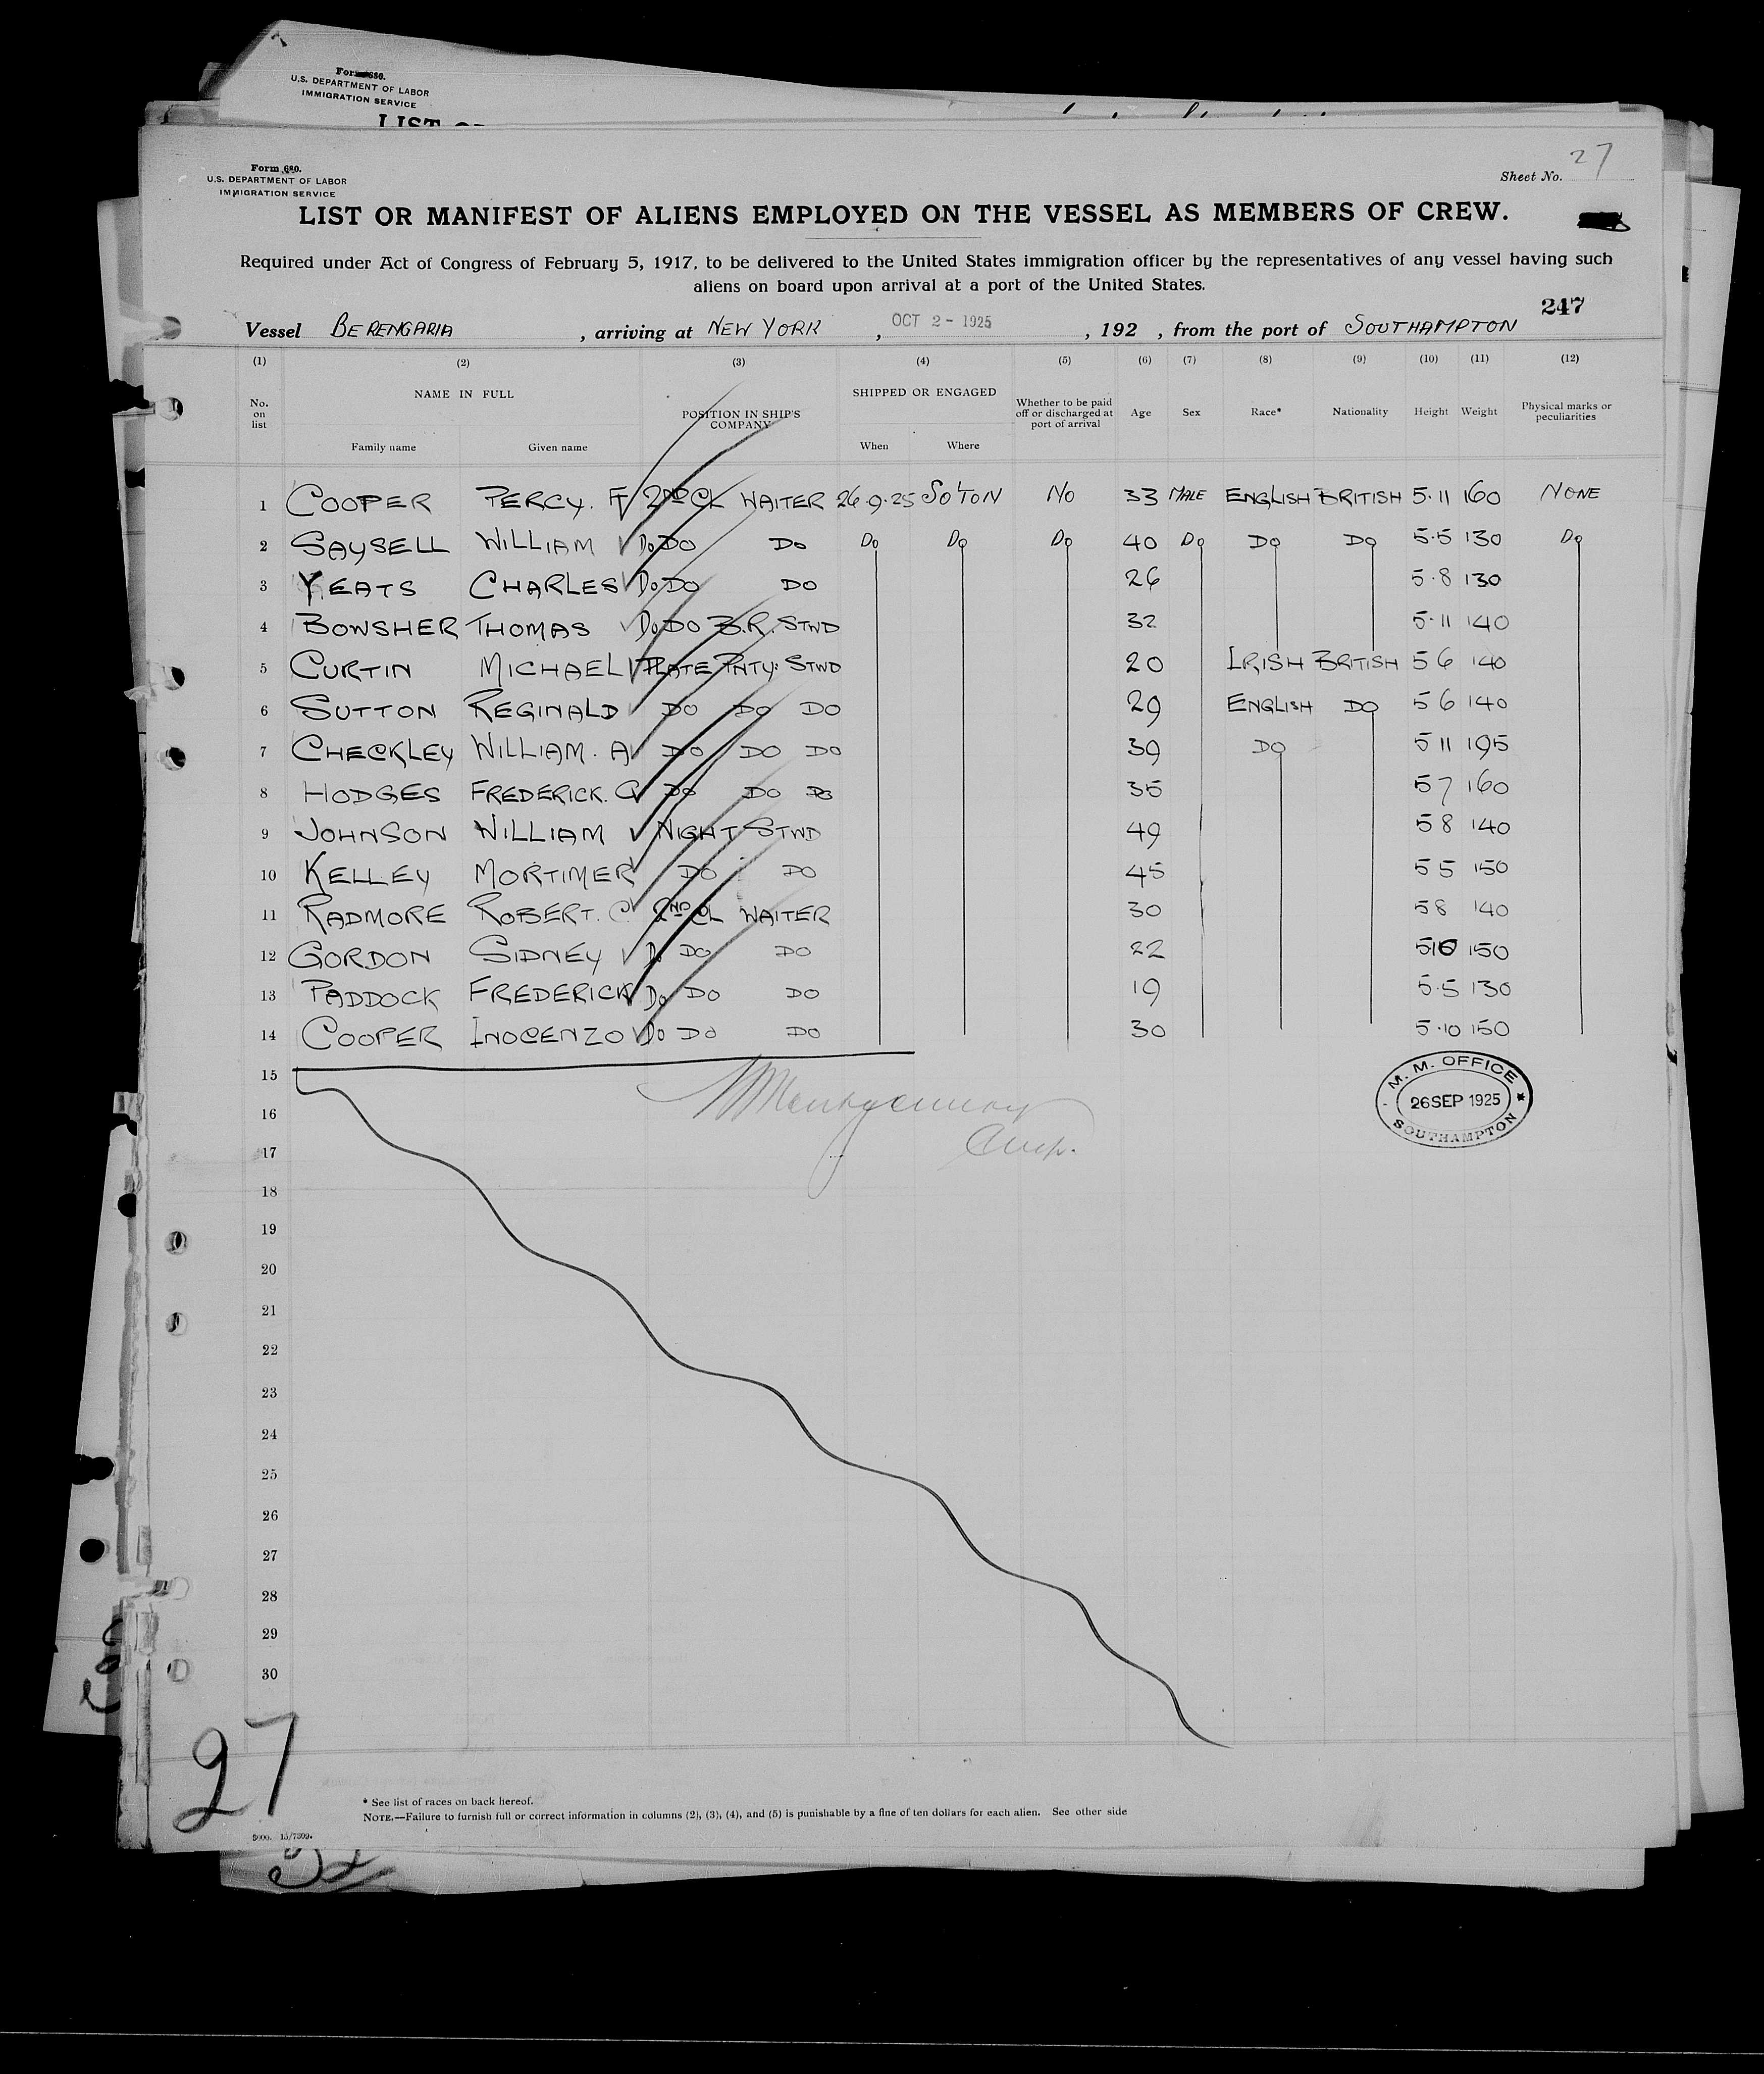 Form 680.
U.S. DEPARTMENT OF LABOR
IMMIGRATION SERVICE
LIST
Form 680.
U.S. DEPARTMENT OF LABOR
IMMIGRATION SERVICE
Sheet No. 27
LIST OR MANIFEST OF ALIENS EMPLOYED ON THE VESSEL AS MEMBERS OF CREW.
Required under Act of Congress of February 5, 1917, to be delivered to the United States immigration officer by the representatives of any vessel having such
aliens on board upon arrival at a port of the United States.
247
Vessel BERENGARIA , arriving at NEW YORK , OCT 2 - 1925 , 192 , from the port of SOUTHAMPTON
(1) (2) (3) (4) (5) (6) (7) (8) (9) (10) (11) (12)
No. on list NAME IN FULL POSITION IN SHIP'S COMPANY SHIPPED OR ENGAGED Whether to be paid off or discharged at port of arrival Age Sex Race* Nationality Height Weight Physical marks or peculiarities
Family name Given name When Where
1 COOPER PERCY. F 2ND CL WAITER 26.9.25 SO'TON NO 33 MALE ENGLISH BRITISH 5.11 160 NONE
2 SAYSELL WILLIAM DO DO DO DO DO DO 40 DO DO DO 5.5 130 DO
3 YEATS CHARLES DO DO DO 26 5.8 130
4 BOWSHER THOMAS DO DO B.R. STWD 32 5.11 140
5 CURTIN MICHAEL PLATE PNTY. STWD 20 IRISH BRITISH 5 6 140
6 SUTTON REGINALD DO DO DO 29 ENGLISH DO 5 6 140
7 CHECKLEY WILLIAM. A DO DO DO 39 DO 5 11 195
8 HODGES FREDERICK. G DO DO DO 35 5 7 160
9 JOHNSON WILLIAM NIGHT STWD 49 5 8 140
10 KELLEY MORTIMER DO DO 45 5 5 150
11 RADMORE ROBERT. C 2ND CL WAITER 30 5 8 140
12 GORDON SIDNEY DO DO DO 22 5 10 150
13 PADDOCK FREDERICK DO DO DO 19 5.5 130
14 COOPER INOCENZO DO DO DO 30 5.10 150
15
M. M. OFFICE
26 SEP 1925
SOUTHAMPTON
16
17
18
19
20
21
22
23
24
25
26
27
28
29
30
27
* See list of races on back hereof.
NOTE.—Failure to furnish full or correct information in columns (2), (3), (4), and (5) is punishable by a fine of ten dollars for each alien. See other side